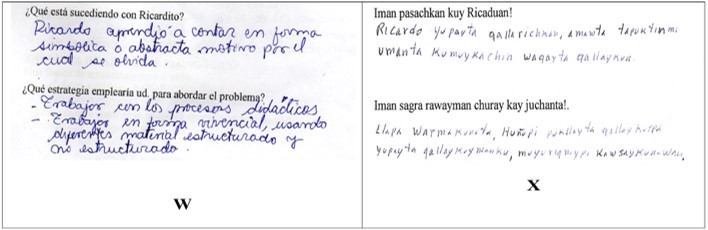 ¿Qué está sucediendo con Ricardito?
Ricardo aprendió a contar en forma
simbolica o abstracta motivo por el
cual se olvida.
¿Qué estrategia emplearía ud. para abordar el problema?
- Trabajar con los procesos didácticos
- Trabajar en forma vivencial, usando
diferentes material estructurado y
no estructurado.
W
Iman pasachkan kuy Ricaduan!
Ricardo yupayta qallarichkan, amawta tapuktinmi
umanta kumuykachin waqayta qallaykun.
Iman sagra rawayman churay kay juchanta!.
Llapa warmakunata, huñupi pukllayta
yupayta qallaykuymanku, muyuriqniypi kawsaykunawan.
X